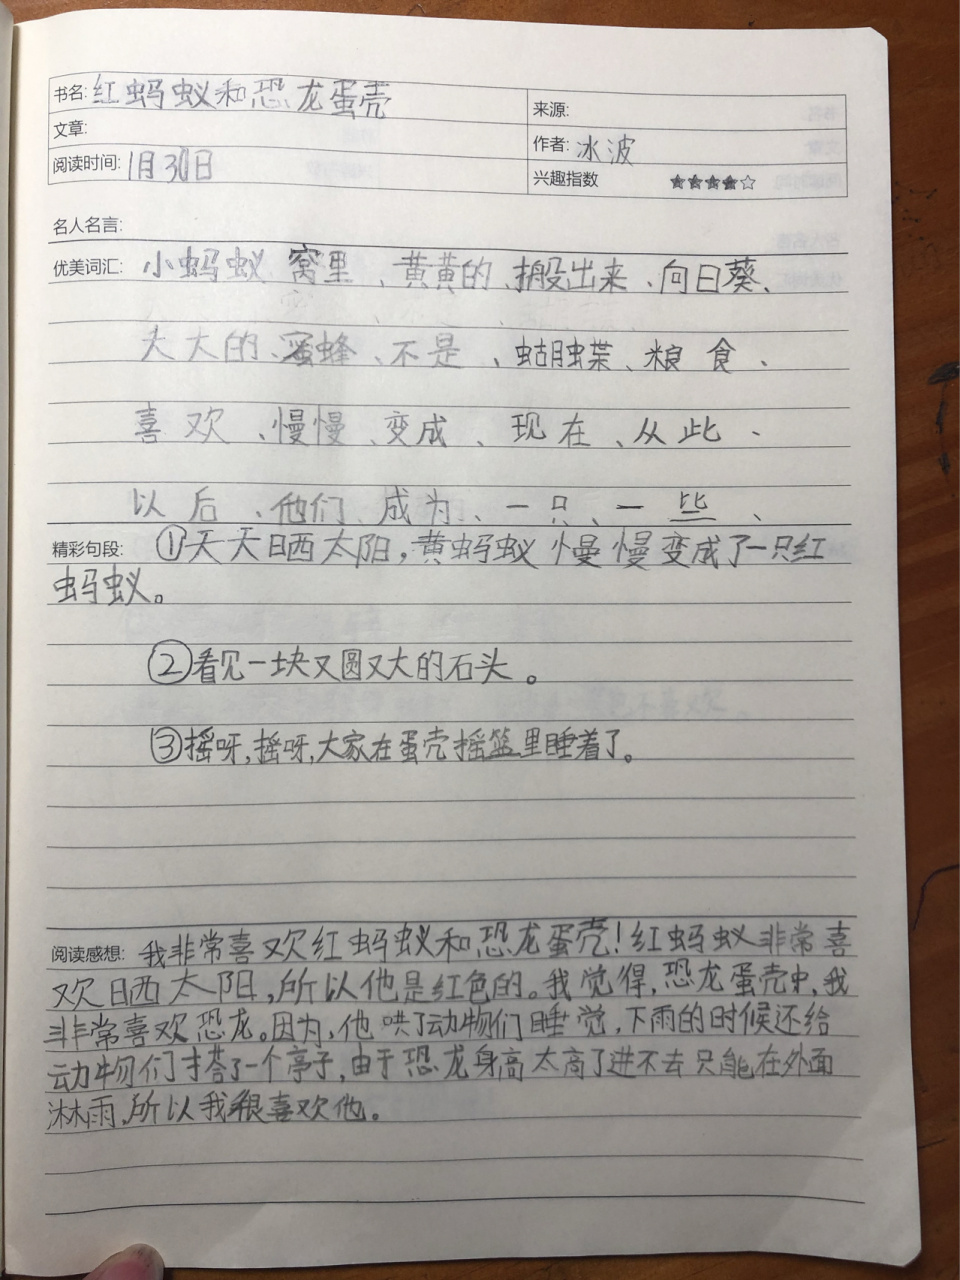 书名: 红蚂蚁和恐龙蛋壳
来源:
文章:
作者: 冰波
阅读时间: 1月30日
兴趣指数 ★★★★☆
名人名言:
优美词汇: 小蚂蚁 窝里、黄黄的、搬出来、向日葵、
大大的、蜜蜂、不是、蝴蝶、粮食、
喜欢、慢慢、变成、现在、从此、
以后、他们、成为、一只、一些、
精彩句段: ①天天晒太阳,黄蚂蚁慢慢变成了一只红
蚂蚁。
②看见一块又圆又大的石头。
③摇呀,摇呀,大家在蛋壳摇篮里睡着了。
阅读感想: 我非常喜欢红蚂蚁和恐龙蛋壳!红蚂蚁非常喜
欢晒太阳,所以他是红色的。我觉得,恐龙蛋壳中,我
非常喜欢恐龙。因为,他哄了动物们睡觉,下雨的时候还给
动物们搭了一个亭子,由于恐龙身高太高了进不去只能在外面
淋雨,所以我很喜欢他。